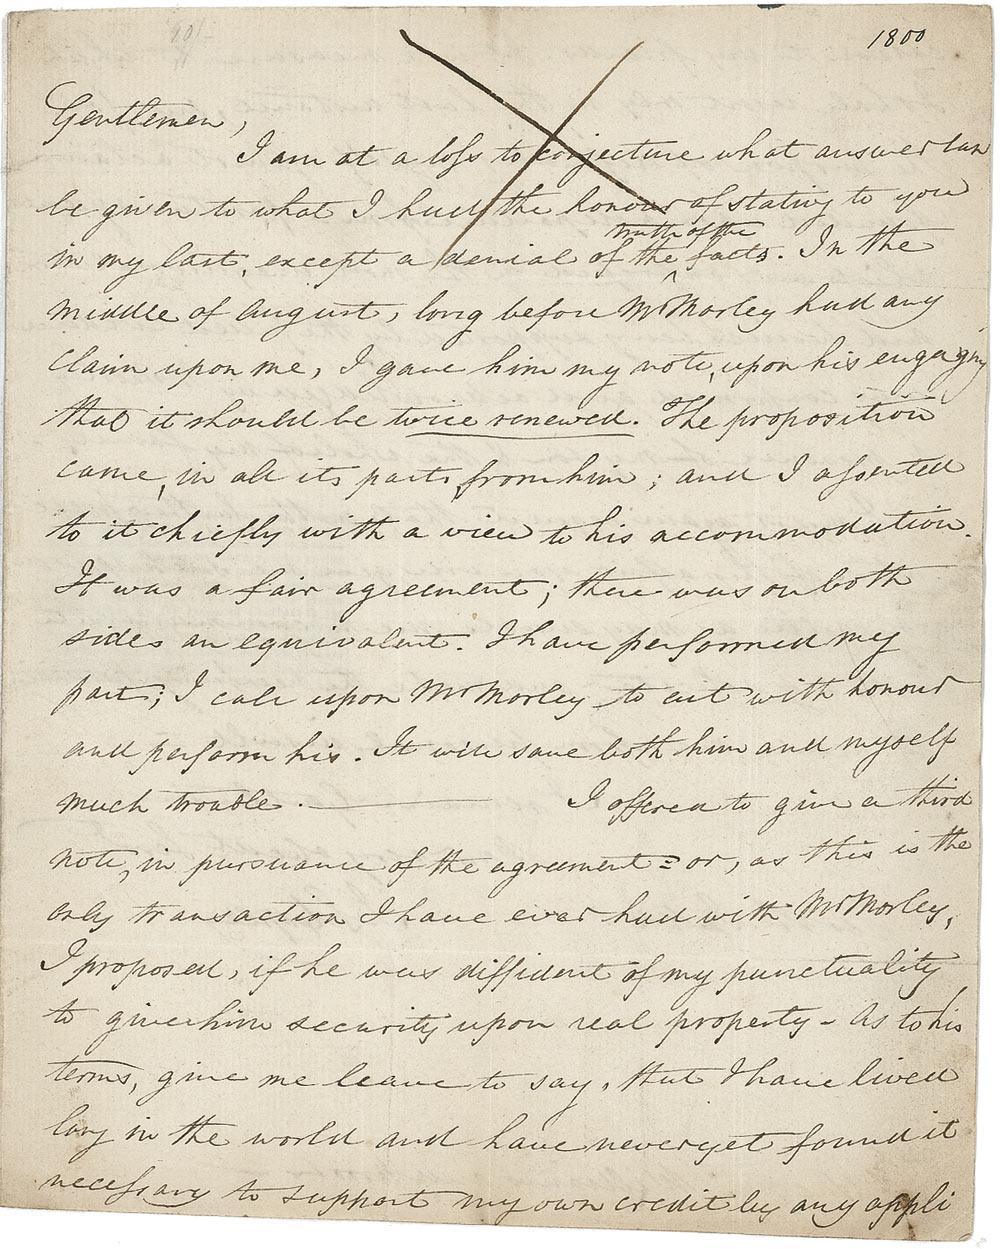 1800
Gentlemen,
I am at a loss to conjecture what answer can
be given to what I had the honour of stating to you
in my last, except a denial of the truth of the facts. In the
middle of August, long before Mr Morley had any
claim upon me, I gave him my note, upon his engaging
that it should be twice renewed. The proposition
came, in all its parts, from him; and I assented
to it chiefly with a view to his accommodation.
It was a fair agreement; there was on both
sides an equivalent. I have performed my
part; I call upon Mr Morley to act with honour
and perform his. It will save both him and myself
much trouble. — I offered to give a third
note, in pursuance of the agreement = or, as this is the
only transaction I have ever had with Mr Morley,
I proposed, if he was diffident of my punctuality
to give him security upon real property - As to his
terms, give me leave to say, that I have lived
long in the world and have never yet found it
necessary to support my own credit by any appli